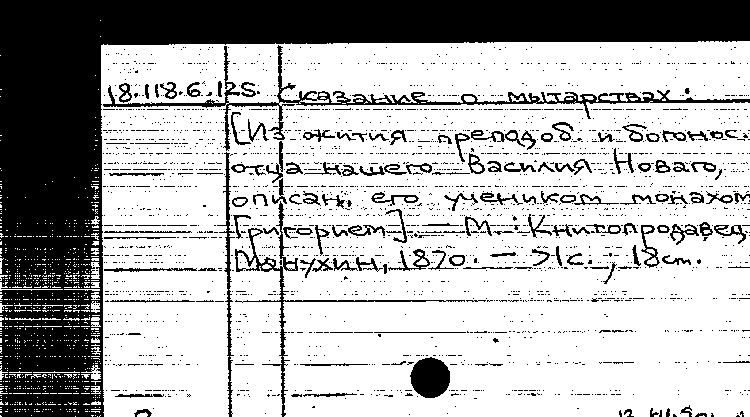 18.118.6.125. Сказание о мытарствах:
[Из жития препод. и богонос.
отца нашего Василия Новаго,
описан. его учеником монахом
Григорием]. — М.: Книгопродавец
Манухин, 1870. — 71с.; 18см.